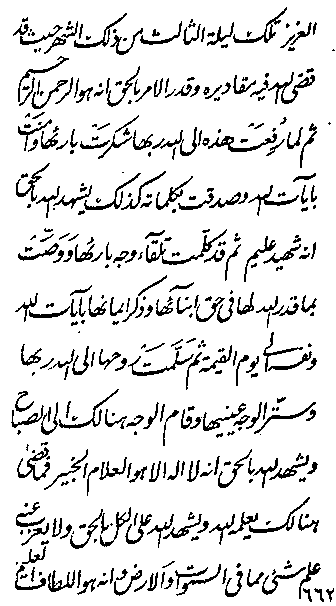 العزيز تلك ليلة الثالث من ذلك الشهر حيث قد
قضى الله فيه مقاديره وقدر الامر بالحق انه هو الرحمن الرحيم
ثم لما رفعت هذه الى الله ربها شكرت بارئها وآمنت
بايآت الله وصدقت بكلماته كذلك يشهد الله بالحق
انه شهيد عليم ثم قد كلمت تلقآء وجه بارئها ووصت
بما قدر الله لها في حق ابنآئها وذكر ايمانها بايآت الله
ونفر الى يوم القيمة ثم سلمت روحها الى الله ربها
وستر الوجه عينيها وقام الوجه هنالك الى الصباح
ويشهد الله بالحق انه لا اله الا هو العلام الخبير فما قضى
هنالك يعلمه الله ويشهد الله على الكل بالحق ولا يعزب عنه
علم شئ مما في السموات والارض وانه هو اللطاف العليم
١٦٦٢